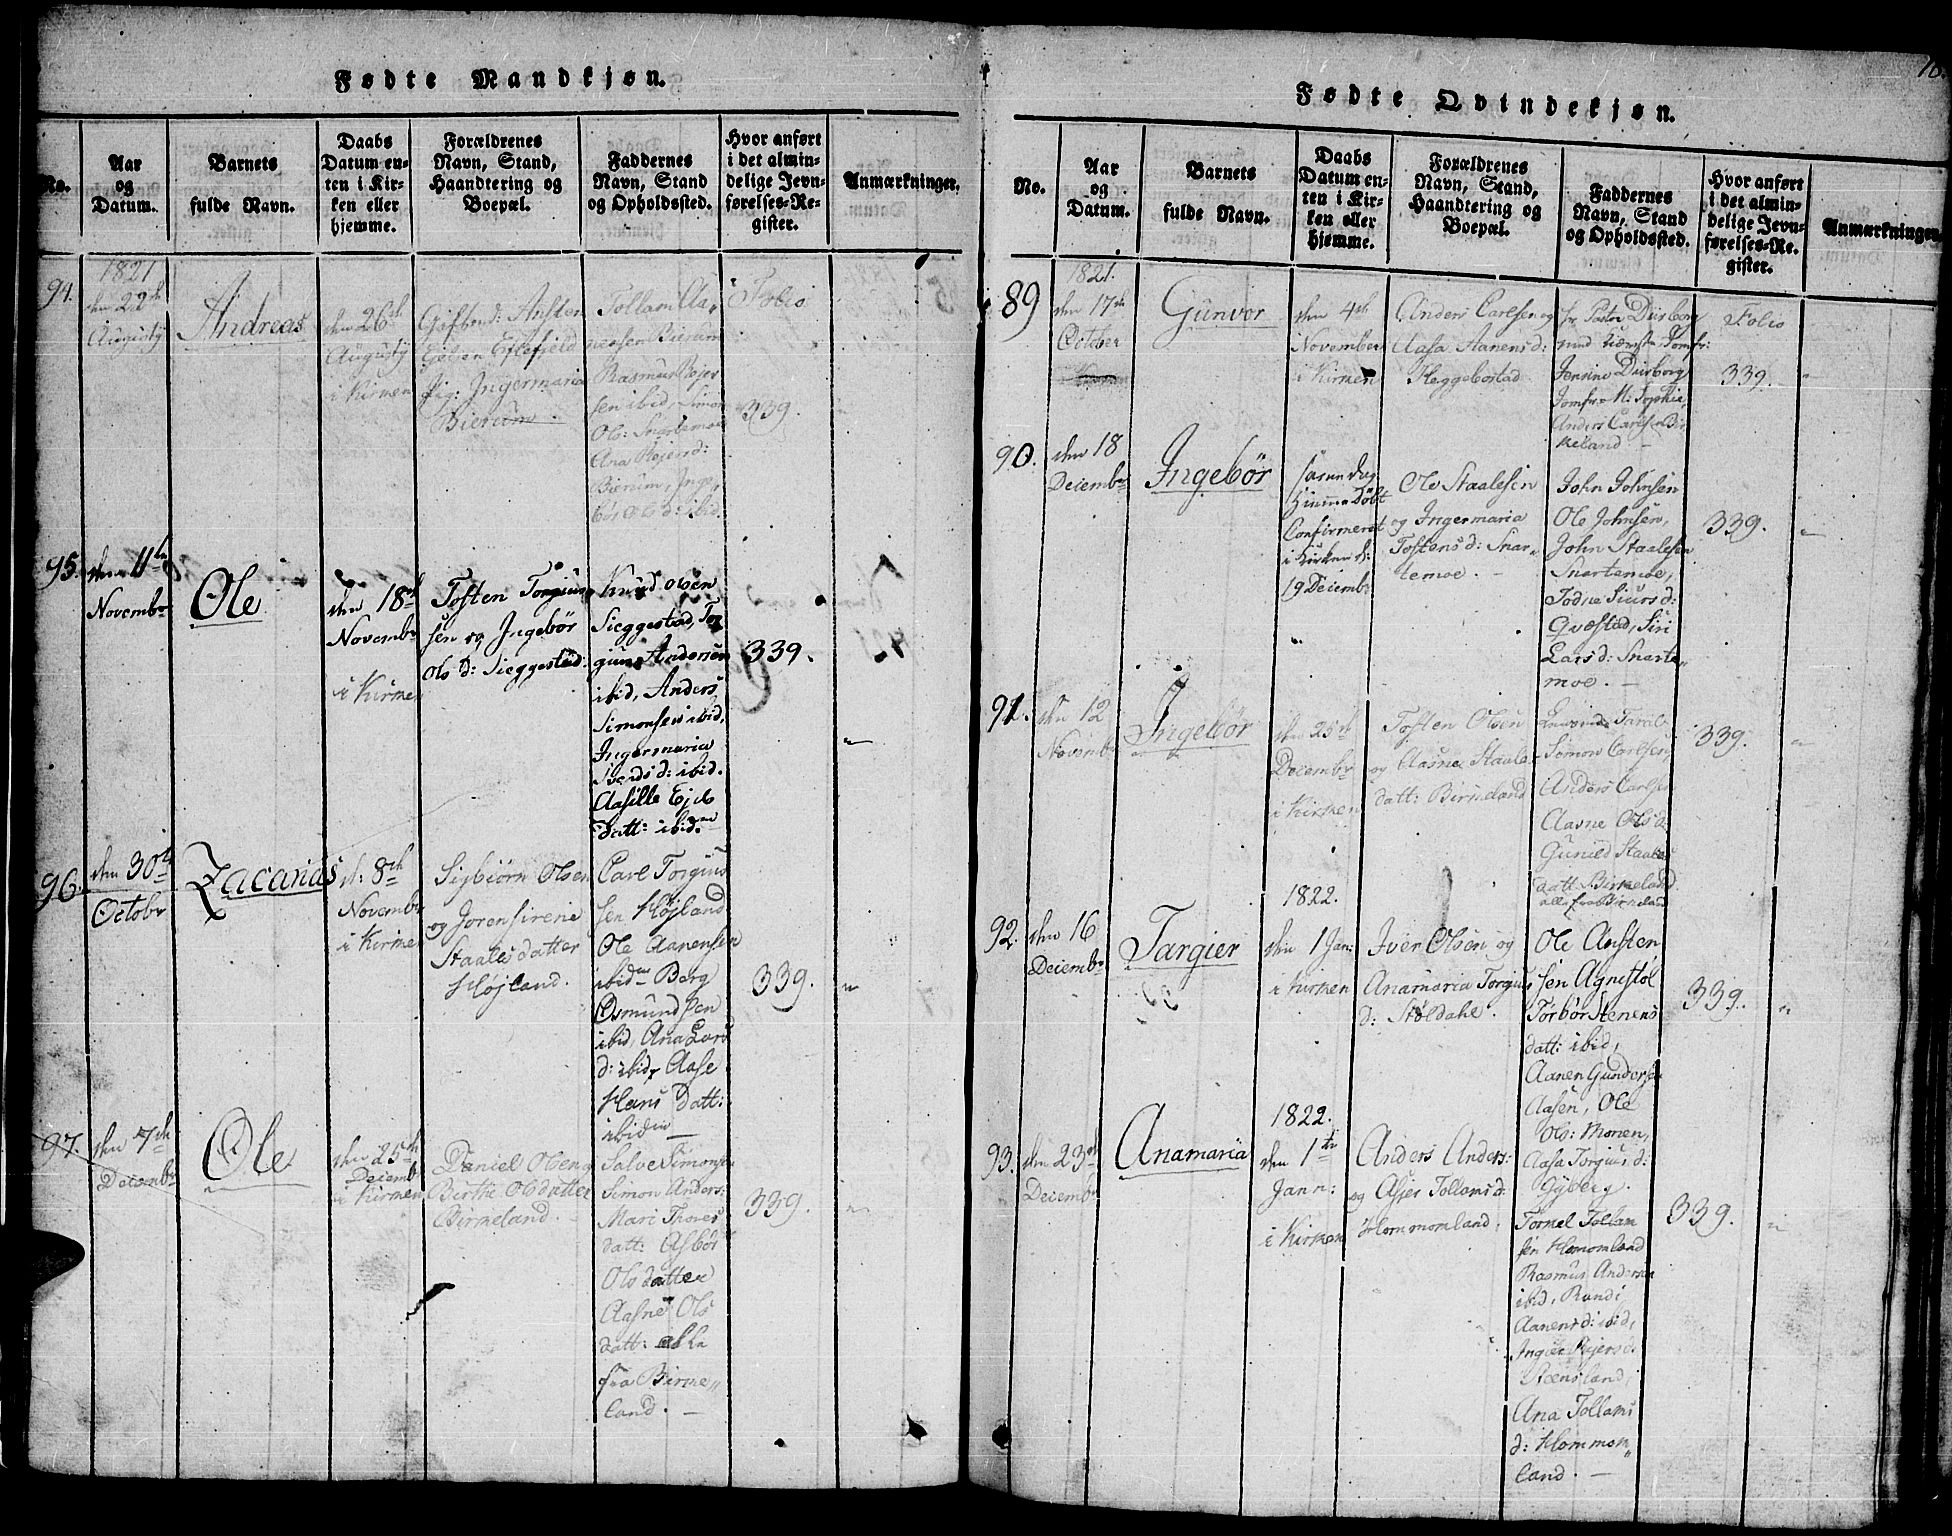 Fødte Mandkjøn.
No.
Aar
og
Datum.
Barnets
fulde Navn.
Daabs
Datum en-
ten i Kir-
ken eller
hjemme.
Forældrenes
Navn, Stand,
Haandtering og
Boepæl.
Faddernes
Navn, Stand
og Opholdssted.
Hvor anført
i det almin-
delige Jevn-
førelses-Re-
gister.
Anmærkninger.
94.
1821
den 22de
Augusty
Andreas
den 26de
Augusty
i Kirken
Pig: Ingermaria
Bierum
Tollam Aa-
nensen Bierum
Rasmus Rejer
sen ibid, Simon
Ols: Snartemoe
Ana Rejersd:
Bierum, Inge-
bør Olsd: ibid.
Folio
339.
95.
den 11te
Novembr
Ole
den 18de
Novembr
i Kirken
Tosten Torgius
sen og Ingebør
Ols d: Sieggestad
Knud Olsen
Sieggestad, Tor
gius Andersen
ibid, Anders
Simonsen ibid,
Ingermaria
Svends d: ibid.
Aasille Ejels
Datt: ibidm
339.
"
96.
den 30te
Octobr
Zacarias
d: 8de
Novembr
i Kirken
Sigbiørn Olsen
og Jorensirene
Staalesdatter
Højland.
Carl Torgius
sen Højland
Ole Aanensen
ibidm Berg
Osmundsen
ibid, Ana Lars
d: ibid, Aase
Hans Datt:
ibidm —
339.
"
97.
den 7de
Decembr
Ole
den 25de
Decembr
i Kirken
Daniel Olsen og
Birthe Olsdatter
Birkeland. -
Salve Simonsen
Simon Anders:
Mari Thores
datt: Asbør
Olsdatter
Aasne Ols
datt: alle
fra Birke„
land. —
339.
"
Fødte Qvindekjøn.
No.
Aar
og
Datum.
Barnets
fulde Navn.
Daabs
Datum en-
ten i Kir-
ken eller
hjemme.
Forældrenes
Navn, Stand,
Haandtering og
Boepæl.
Faddernes
Navn, Stand
og Opholdssted.
Hvor anført
i det almin-
delige Jevn-
førelses-Re-
gister.
Anmærkninger.
89
1821.
den 17de
October
Gunvor
den 4de
November
i Kirken
Anders Carlsen og
Aasa Aanensd:
Heggebostad
hr Pastor Duisborg
Jensine Duisborg
Jomfr. M: Sophie,
Anders Carlsen Bir
keland —
Folio
339.
"
90.
den 18
Decembr
Ingebør
samme dag
hiemme døbt
Confirmeret
i Kirken d:
19 Decembr
"
Ole Staalesen
og Ingermaria
Tostensd: Snar„
temoe. —
John Johnsen
Ole Johnsen,
John Staalesen
Snartemoe,
Todne Siursd:
Qvæstad, Siri
Larsd: Snarte„
moe. —
339.
"
91.
den 12
Novembr
Ingebør
den 25de
Decembr
i Kirken
Tosten Olsen
og Aasne Staale-
datt: Birkeland
Simon Carlsen,
Anders Carlsen
Aasne Olsd:
Gunild Staales
datt. Birkeland
alle fra Birkeland
339.
"
92.
den 16
Decembr
Targier
1822.
den 1 Jan:
i Kirken
Iver Olsen og
Anamaria Torgius
d: Støldahl.
Ole Ansten
sen Agnestøl
Torbør Stenens
datt: ibid,
Aanen Gundersen
Aasen, Ole
Ols: Monen,
Aasa Torgius d:
Gyberg.
339.
"
93.
den 23de
Decembr
Anamaria
1822.
den 1te
Jann:
i Kirken
Anders Anders:
og Asjer Tollamsd:
Hommomland.
Tornel Tollam
sen Homomland
Rasmus Andersen
ibid, Randi
Aanensd: ibid,
Inger Rejersd:
Steensland,
Ana Tollams
d: Hommom„
land. —
339.
"